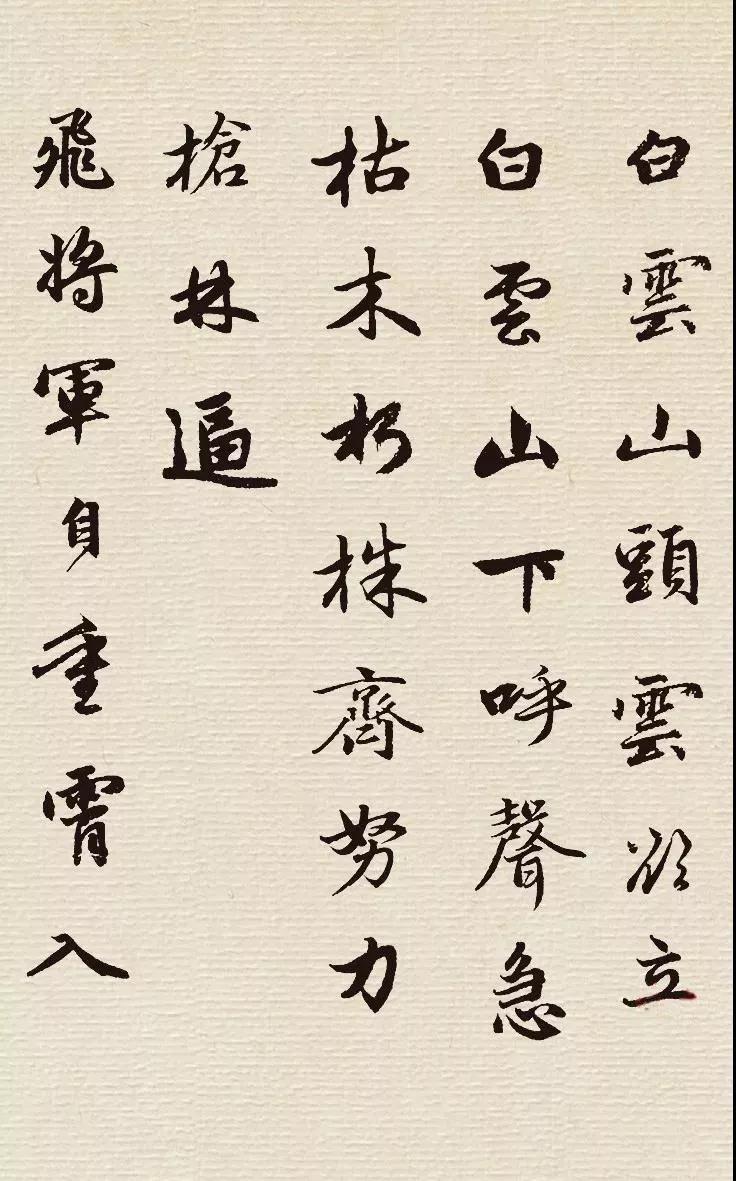 白雲山頭雲欲立
白雲山下呼聲急
枯木朽株齊努力
槍林逼
飛將軍自重霄入